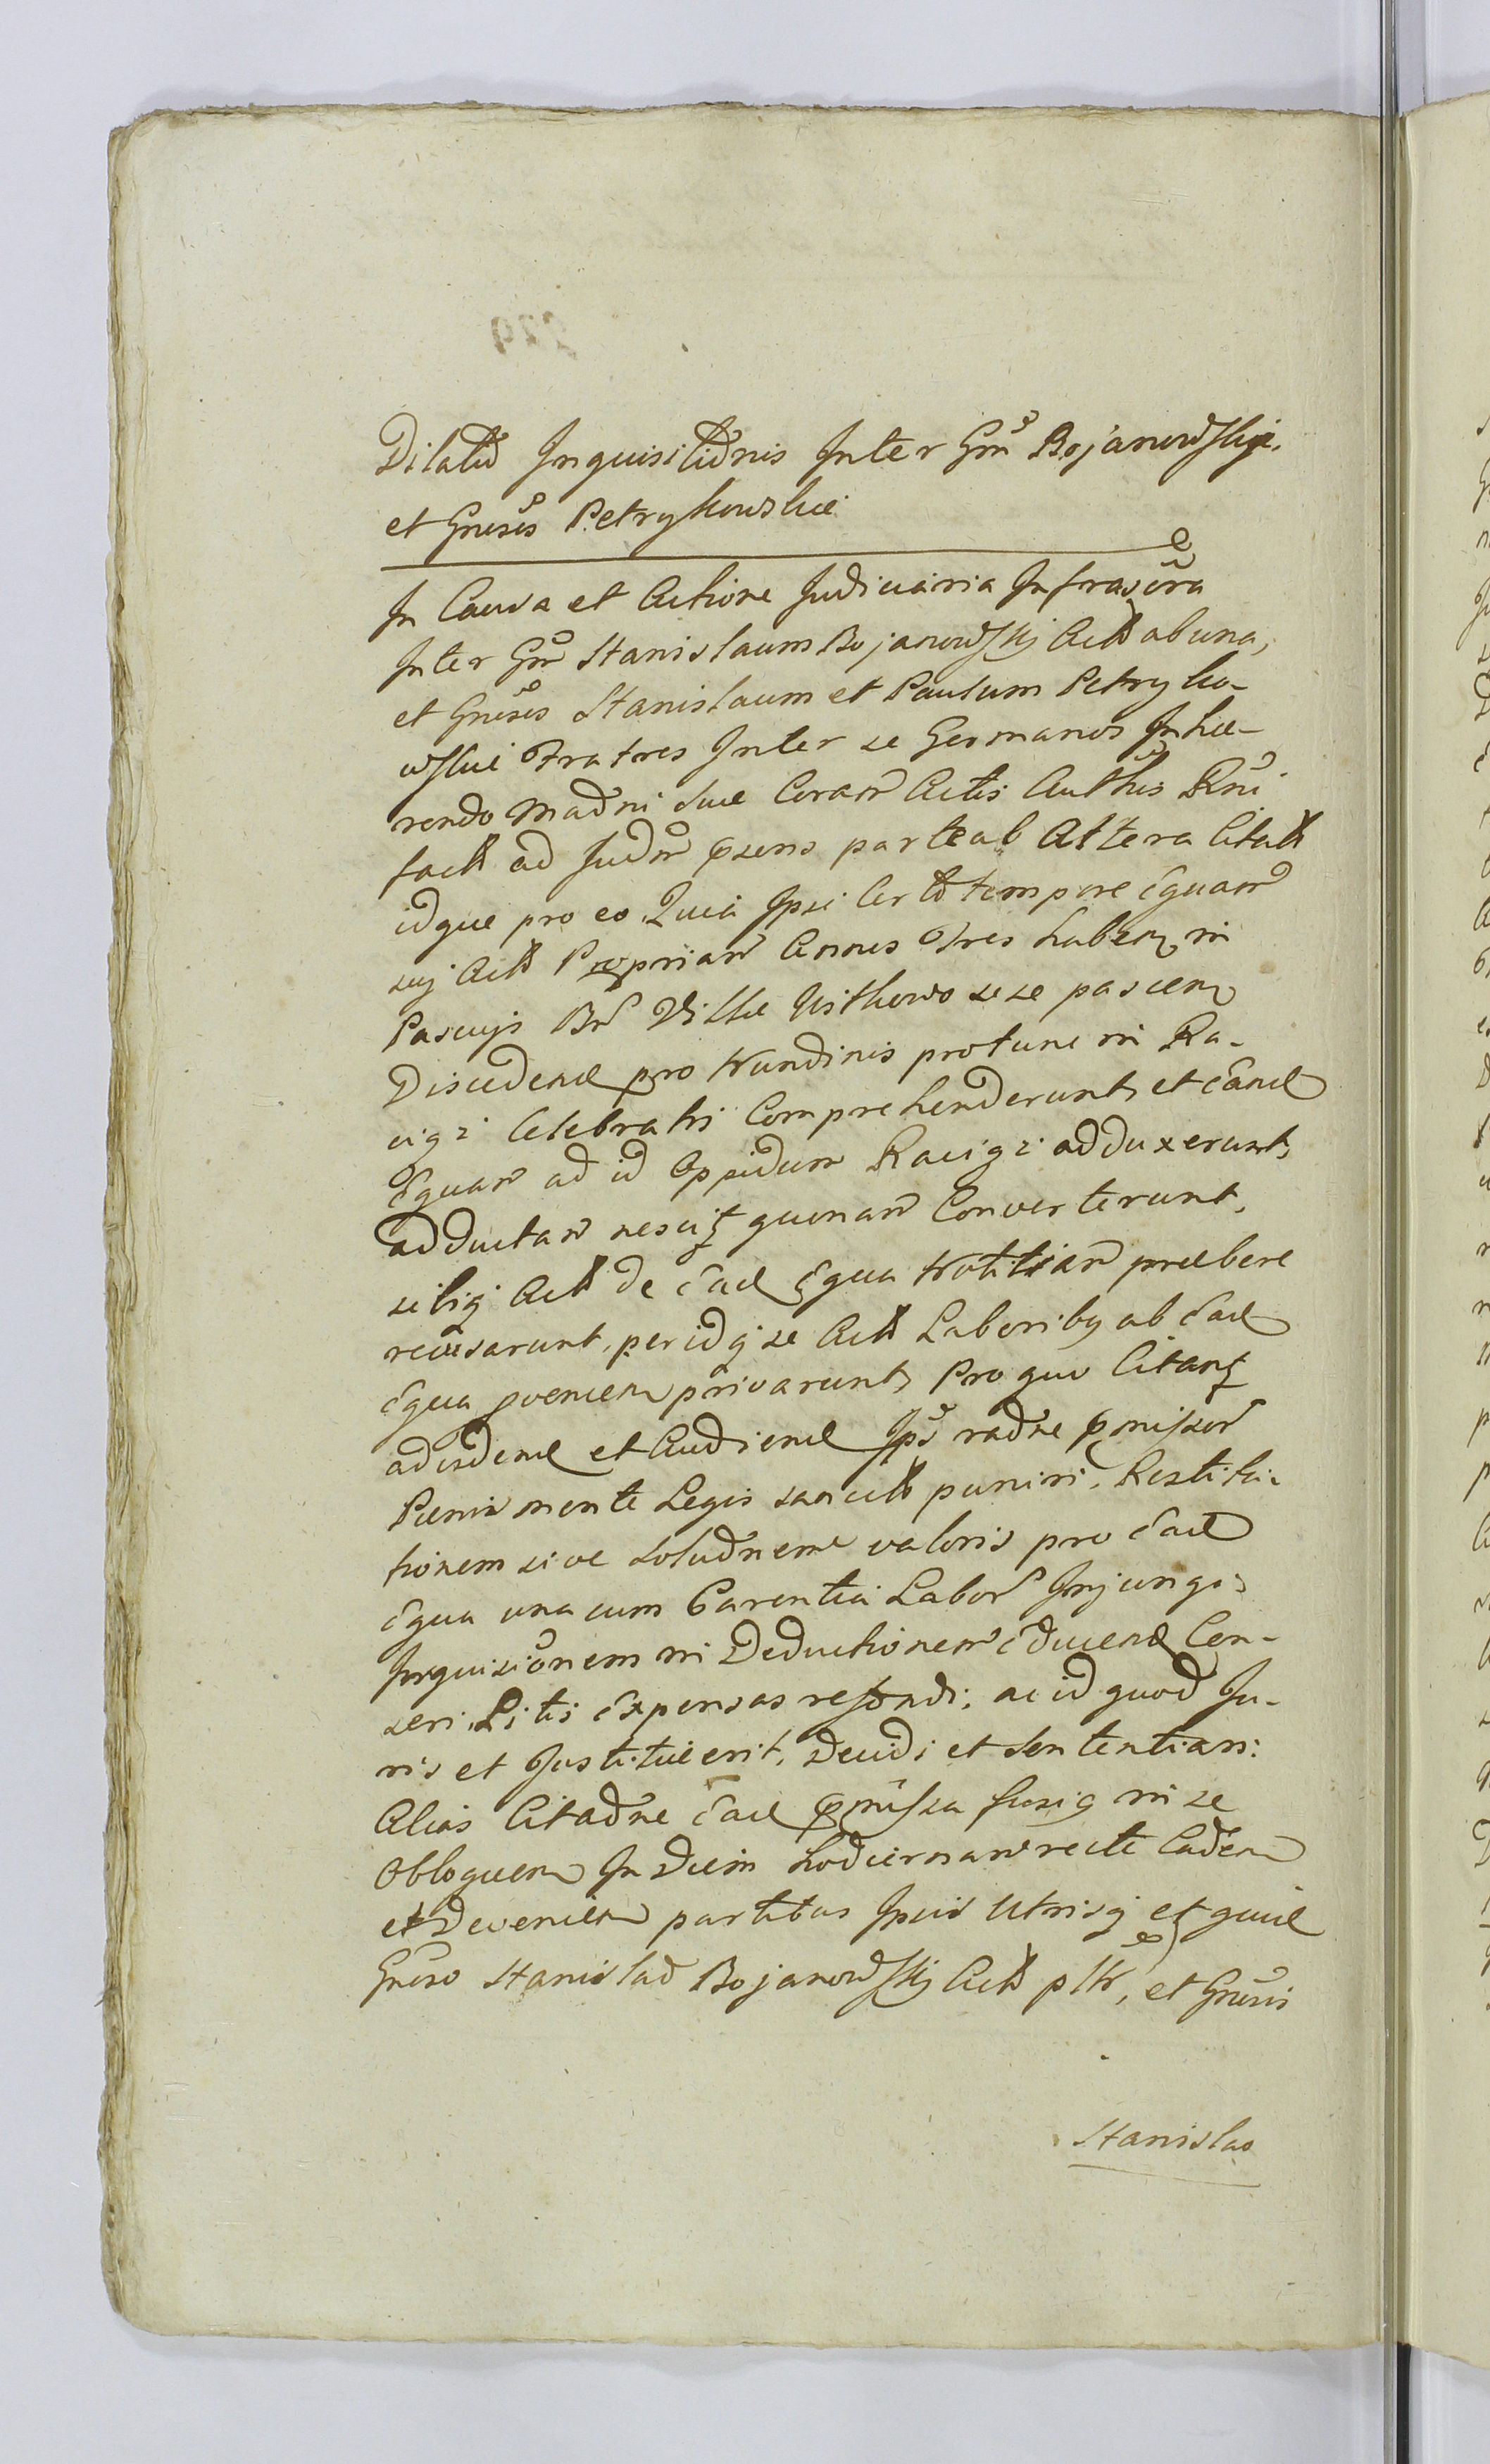 Dilatio Inquisitionis Inter Gm̃ Bojanowski
et Gnẽsos Petrykowskie
In Causa et Actione Judiciaria Infrascr̃a
Inter Gm̃ Stanislaum Bojanowskj Actt ab una,
et Gnẽsos Stanislaum et Paulum Petryko-
wskie Fratres Inter se Germanos Inhæ-
rendo mad̃ni suæ Coram Actis Auth̃is Rñi
factt ad Jud̃m p̃sens parte ab Altera Citatt
idque pro eo Quia Ipsi Certo tempore Equam
suj Actt Propriam Annos Tres haben in
Pascujs Br̃ Villæ Witkowo sese pascen
Discedend pro Nundinis protunc in Ra-
ciąz Celebratis Comprehenderunt, et eand
Equam ad id Oppidum Raciąz adduxerunt,
adductam nescit quonam Converterunt,
sibiq Actt de ead Equa Notitiam præbere
recusarunt, per idq se Actt Laboribq ab ead
Equa p̃venien privarunt, Pro quo Citant
ad vidend et Audiend Ips̃ rad̃ne p̃missor
Pœnis mente Legis sancitt puniri, Restitu-
tionem sive solud̃nem valoris pro ead
Equa una cum Carentia Labor Injungi,
Inquisic̃onem in Deductionem educend Cen-
seri, Litis Expensas refundi; ac id quod Ju-
ris et Justitiæ erit, decidi et sententiari:
Alias Citad̃ne ead p̃missa fusiq in se
Obloquen In Diem hodiernam recte Caden
et Devenien partibus Ipsis Utrisq et quid
Gnẽso Stanislao Bojanowskj Actt p Ur̃, et Gnẽsis
Stanislao
229